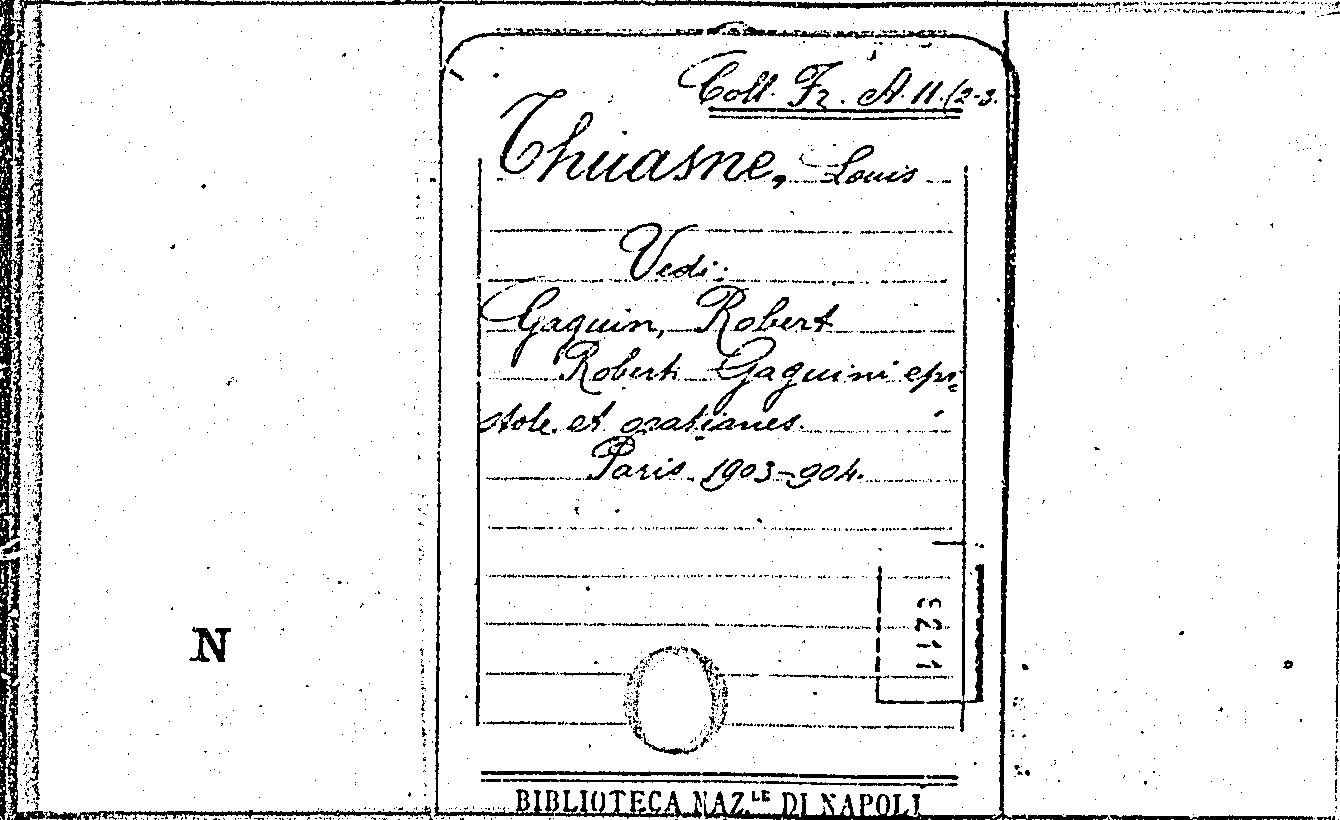 Coll. Fr. A. 11. (2-3.
Thuasne, Louis
Vedi:
Gaguin, Robert
Roberti Gaguini epi-
stole et orationes.
Paris 1903-904.
3211
N
BIBLIOTECA NAZ.LE DI NAPOLI